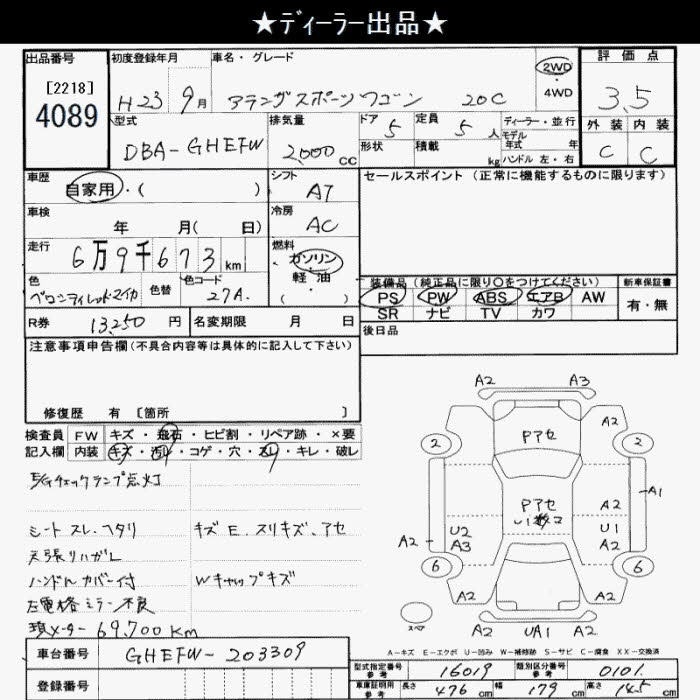 ★ディーラー出品★
出品番号 初度登録年月 車名・グレード 評価点
[2218]
4089
H23 9月 アテンザスポーツワゴン 20C 2WD 4WD 3.5
型式 排気量 ドア 定員 ディーラー・並行 外装 内装
DBA-GHEFW 2,000cc 5 5人 モデル年式 年 C C
形状 積載 kg ハンドル 左・右
車歴 シフト セールスポイント (正常に機能するものに限ります)
自家用・( ) AT
車検 冷房
年 月( 日) AC
走行 燃料
6万9千673km ガソリン・軽油 ( )
色 色替 色コード
27A.
装備品 (純正品に限り○をつけてください) 新車保証書
PS PW ABS エアB AW 有・無
SR ナビ TV カワ
R券 13,250円 名変期限 月 日
後日品
注意事項申告欄(不具合内容等は具体的に記入して下さい)
修復歴 有 [箇所 ]
検査員 FW キズ・飛石・ヒビ割・リペア跡・×要
記入欄 内装 キズ・汚レ・コゲ・穴・スレ・キレ・破レ
E/Gチェックランプ点灯
シート スレ、ヘタリ キズ E. スリキズ、アセ
天張りハガレ
ハンドル カバー付 Wキャップキズ
左電格ミラー不良
現メーター 69,700km
A2 A3
2 Pアセ A2 2
A1
Pアセ A2
U2 U1
A2 A3 A2
6 6
A2 A2
スペア A2 UA1 A2
A-キズ E-エクボ U-凹み W-補修跡 S-サビ C-腐食 XX-交換済
車台番号 GHEFW-203309
登録番号
型式指定番号 参考 16019 類別区分番号 参考 0101
車庫証明用 参考 長さ 476cm 幅 179cm 高さ 145cm